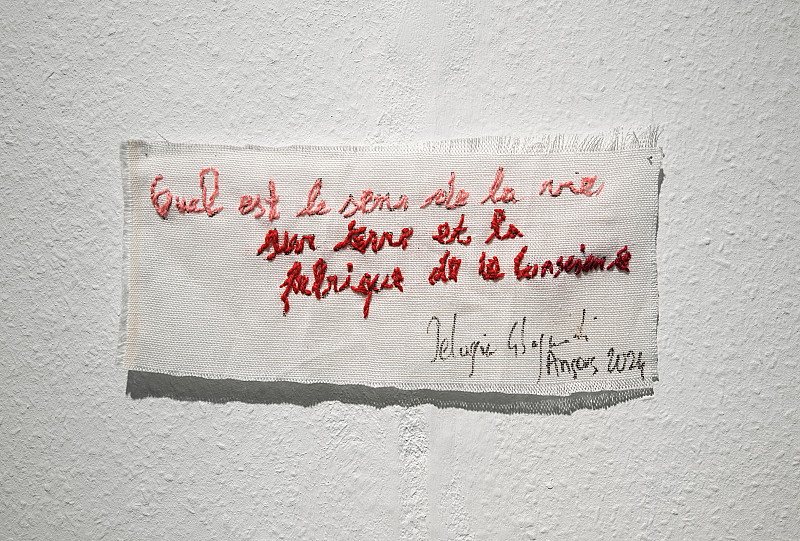 Qual est le sens de la vie
sur terre et la
fabrique de la Conscience
Angers 2024